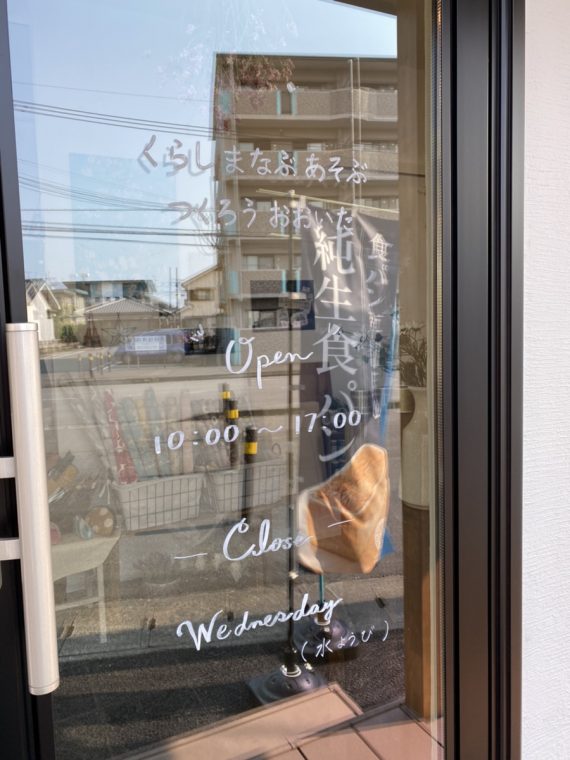 くらし まなぶ あそぶ
つくろう おおいた
Open
10:00 〜 17:00
— Close —
Wednesday
(水ようび)
純生食パン
食パン